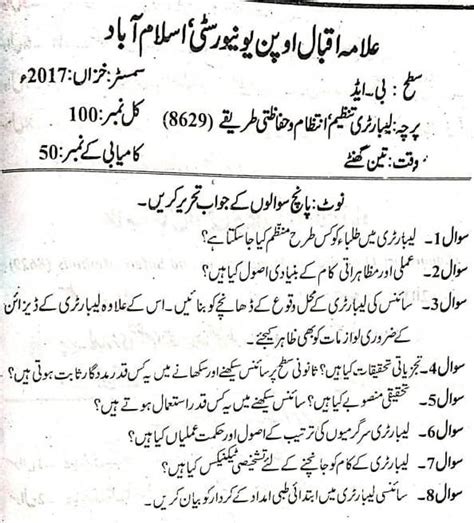 علامہ اقبال اوپن یونیورسٹی، اسلام آباد
سطح: بی۔ایڈ سمسٹر: خزاں: 2017ء
پرچہ: لیبارٹری تنظیم، انتظام و حفاظتی طریقے (8629) کل نمبر: 100
وقت: تین گھنٹے کامیابی کے نمبر: 50
نوٹ: پانچ سوالوں کے جواب تحریر کریں۔
سوال 1۔ لیبارٹری میں طلباء کو کس طرح منظم کیا جا سکتا ہے؟
سوال 2۔ عملی اور مظاہراتی کام کے بنیادی اصول کیا ہیں؟
سوال 3۔ سائنس کی لیبارٹری کے محل وقوع کے ڈھانچے کو بنائیں۔ اس کے علاوہ لیبارٹری کے ڈیزائن
کے ضروری لوازمات کو بھی ظاہر کیجئے۔
سوال 4۔ تجزیاتی تحقیقات کیا ہیں؟ ثانوی سطح پر سائنس سیکھنے اور سکھانے میں یہ کس قدر مددگار ثابت ہوتی ہیں؟
سوال 5۔ تحقیقی منصوبے کیا ہیں؟ سائنس سیکھنے میں یہ کس قدر استعمال ہوتے ہیں؟
سوال 6۔ لیبارٹری سرگرمیوں کی ترتیب کے اصول اور حکمت عملیاں کیا ہیں؟
سوال 7۔ لیبارٹری کے کام کو جانچنے کے لئے تشخیصی ٹیکنیکس کیا ہیں؟
سوال 8۔ سائنسی لیبارٹری میں ابتدائی طبی امداد کے کردار کو بیان کریں۔